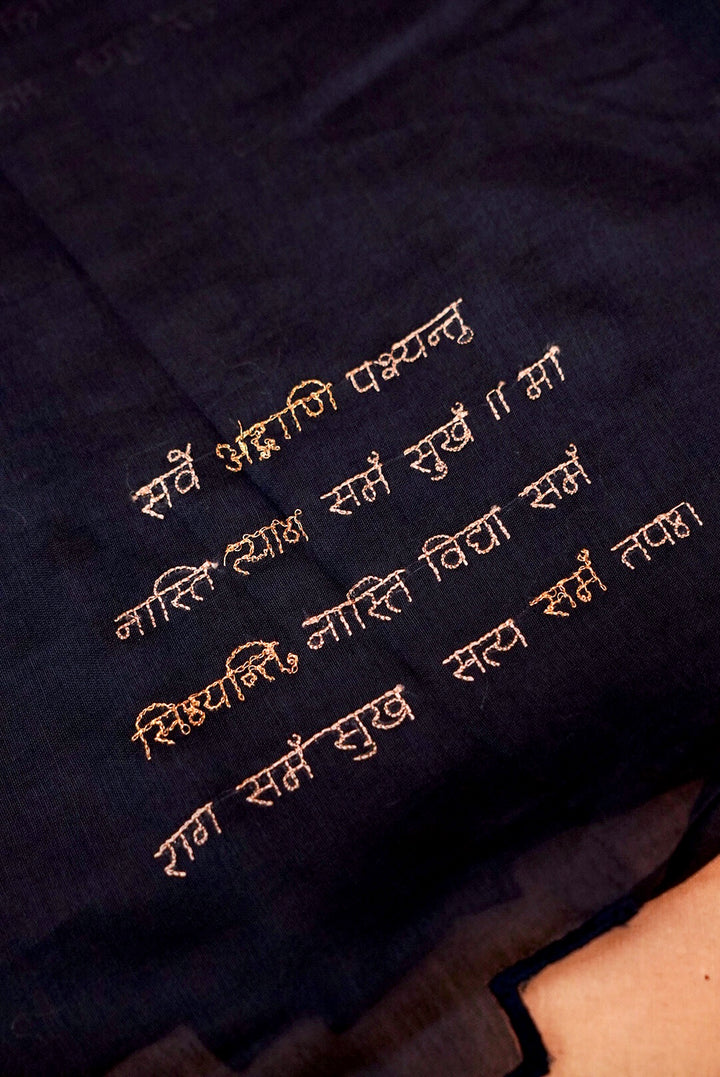 सर्वे भद्राणि पश्यन्तु
नास्ति त्याग समं सुखं ॥ मा
सिध्यन्ति नास्ति विद्या समं
राग समं सुखं सत्य समं